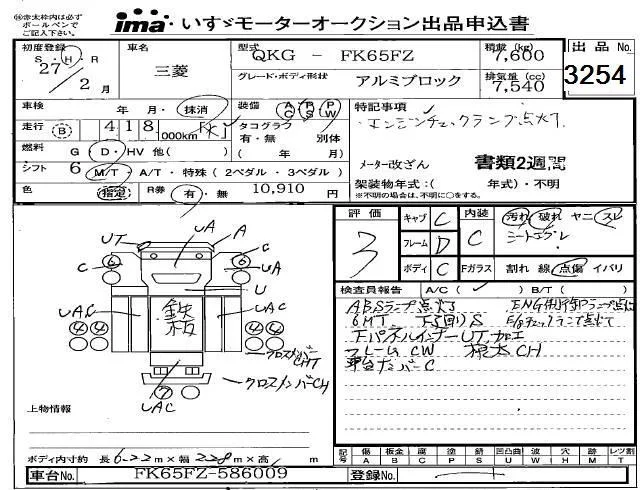 ※赤太枠内は必ずボールペンでご記入下さい。
ima・いすゞモーターオークション出品申込書
初度登録 S・H・R 27年 2月
車名 三菱
型式 QKG - FK65FZ
グレード・ボディ形状 アルミブロック
積載 (kg) 7,600
排気量 (cc) 7,540
出品No. 3254
車検 年 月・抹消
装備 AC PS PW
走行 (B) 418,000km「K」
タコグラフ 有・無 別体
( 年 月)
燃料 G D・HV 他( )
シフト 6 M/T・A/T・特殊(2ペダル・3ペダル)
色 指定 R券 有・無 10,910 円
特記事項
エンジンチェックランプ点灯
メーター改ざん 書類2週間
架装物年式:( 年式)・不明
※不明の場合は、不明に○をする。
評価 3
キャブ C
フレーム D
ボディ C
内装 C
汚れ 破れ ヤニ スレ
Fガラス 割れ 線 点傷 イバリ
検査員報告 A/C( ) B/T( )
ABSランプ点灯 ENG制御ランプ点灯
6MT 下回りS
加工
フレームCW CH
UT UA A
C 6 6 G
UA
U
UAC 鉄板 UAC
4 4 4 4
クロスメンバーCHT
クロスメンバーCH
7
UAC
上物情報
ボディ内寸約 長 6.22 m×幅 2.28 m×高 m
記号 傷A 板金B 腐C 塗P 錆S 凹凸曲U 波W 穴H 跡M レツ割T
車台No. FK65FZ-586009
登録No.